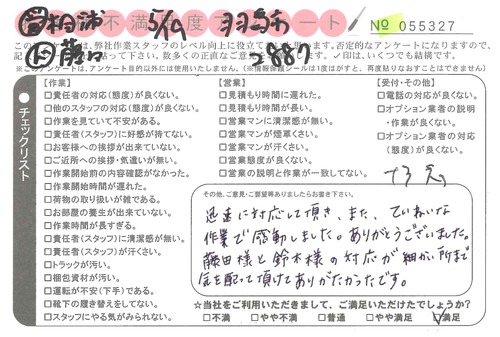 不満 度 アンケート № 055327
2887
このアンケートは、弊社作業スタッフのレベル向上に役立て
記 貼って下さい。数多くの正直なご意 ✓印は、いくつでも結構です。
※このアンケートは、アンケート目的以外には使用いたしません。(※情報保護シールは1度はがすと、再度貼りなおすことはできません)
チェックリスト
【作業】
□責任者の対応(態度)が良くない。
□他のスタッフの対応(態度)が良くない。
□作業を見ていて不安がある。
□責任者(スタッフ)に好感が持てない。
□お客様への挨拶が出来ていない。
□ご近所への挨拶・気遣いが無い。
□作業開始前の内容確認がなかった。
□作業開始時間が遅れた。
□荷物の取り扱いが雑である。
□お部屋の養生が出来ていない。
□作業時間が長すぎる。
□責任者(スタッフ)に清潔感が無い。
□責任者(スタッフ)が汗くさい。
□トラックが汚い。
□梱包資材が汚い。
□運転が不安(下手)である。
□靴下の履き替えをしてない。
□スタッフにやる気がみられない。
【営業】
□見積もり時間に遅れた。
□見積もり時間が長い。
□営業マンに清潔感が無い。
□営業マンが煙草くさい。
□営業マンが汗くさい。
□営業態度が良くない。
□営業の説明と作業が一致してない。
【受付・その他】
□電話の対応が良くない。
□オプション業者の説明
・作業が良くない。
□オプション業者の対応
(態度)が良くない。
その他、ご意見・ご要望等ありましたらお書き下さい。
迅速に対応して頂き、また、ていねいな
作業で感動しました。ありがとうございました。
藤田様と鈴木様の対応が細かい所まで
気を配って頂けてありがたかったです。
☆当社をご利用いただきまして、ご満足いただけたでしょうか?
□不満 □やや不満 □普通 □やや満足 ☑満足